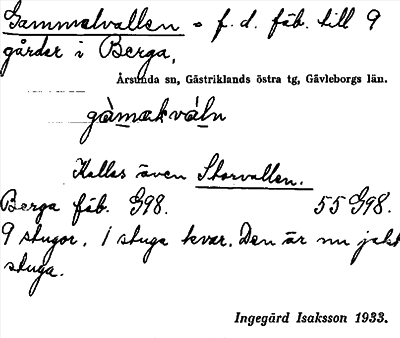 Gammelvallen = f. d. fäb. till 9
gårdar i Berga,
Årsunda sn, Gästriklands östra tg, Gävleborgs län.
gàmakváln
Kallas även Storvallen.
Berga fäb. G98. 55 G98.
9 stugor. 1 stuga kvar. Den är nu jakt
stuga.
Ingegärd Isaksson 1933.